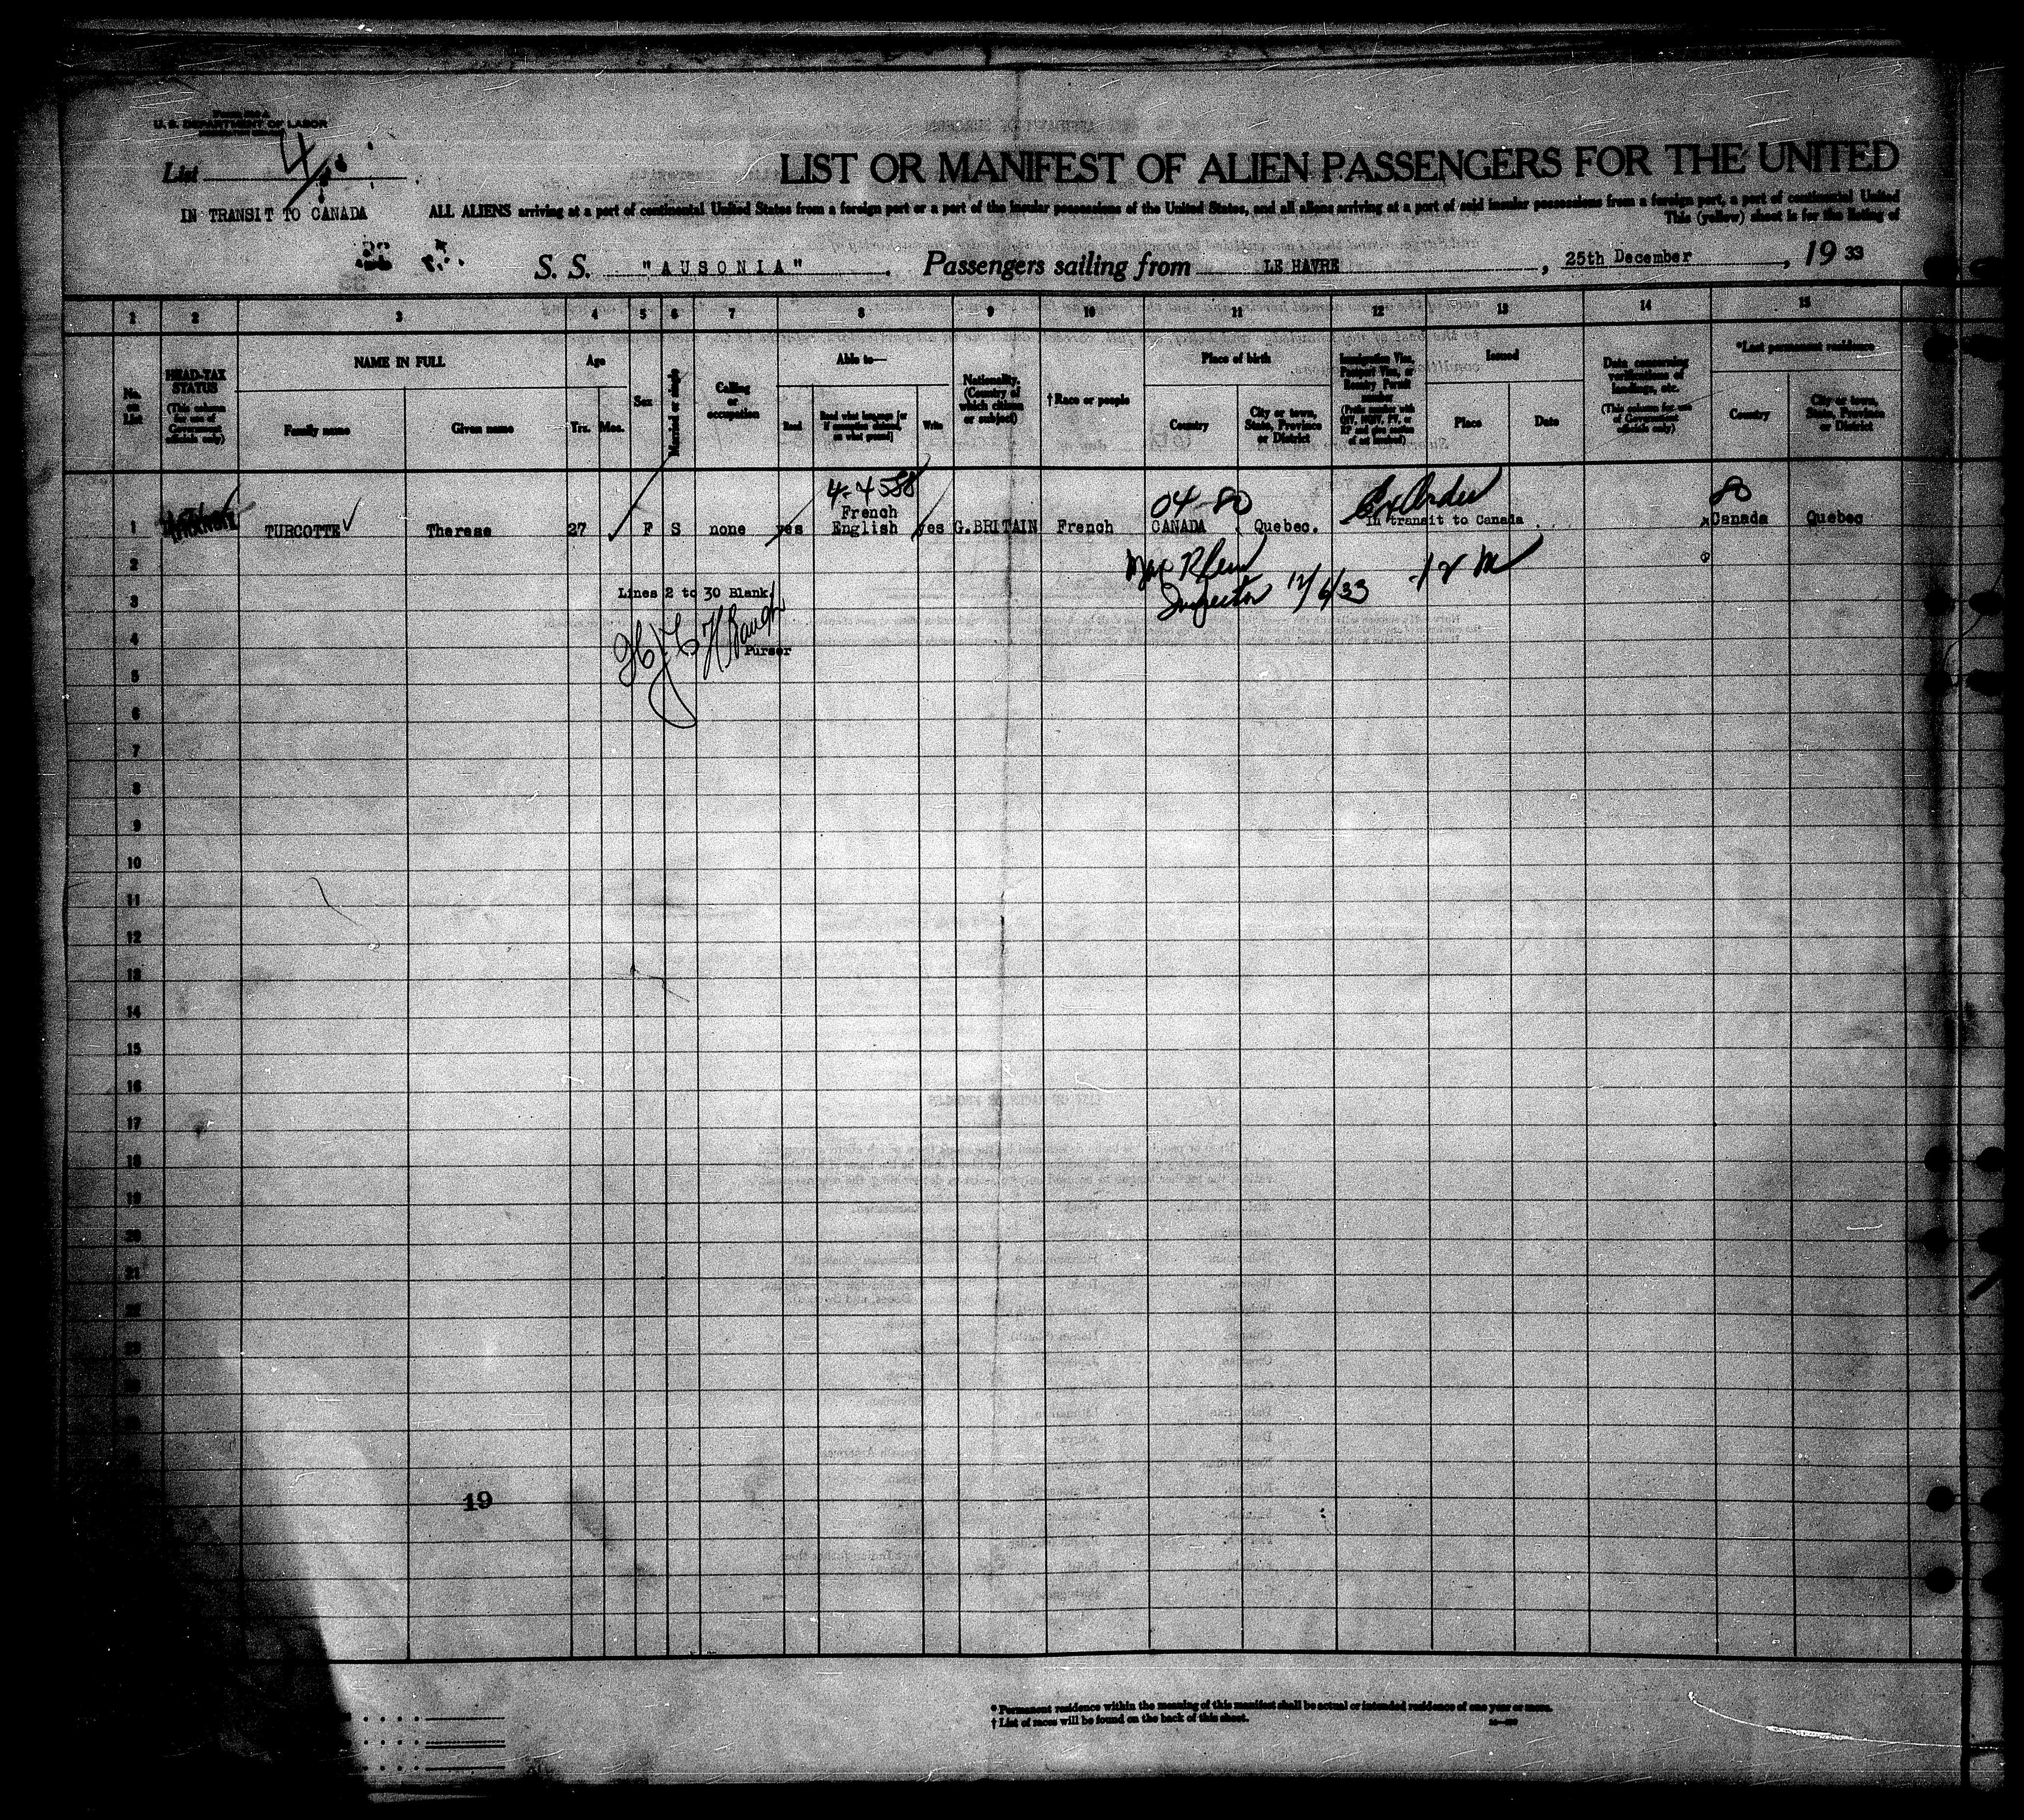 U. S. DEPARTMENT OF LABOR
List 4
LIST OR MANIFEST OF ALIEN PASSENGERS FOR THE UNITED
IN TRANSIT TO CANADA
ALL ALIENS arriving at a port of continental United States from a foreign port or a port of the insular possessions of the United States, and all aliens arriving at a port of said insular possessions from a foreign port, a port of continental United
This (yellow) sheet is for the listing of
S. S. "AUSONIA" Passengers sailing from LE HAVRE, 25th December, 19 33
1 2 3 4 5 6 7 8 9 10 11 12 13 14 15
No. on List
HEAD-TAX STATUS
(This column for use of Government officials only)
NAME IN FULL
Family name
Given name
Age
Yrs. Mos.
Sex
Married or single
Calling or occupation
Able to—
Read
Read what language [or if exemption claimed, on what ground]
Write
Nationality. (Country of which citizen or subject)
†Race or people
Place of birth
Country
City or town, State, Province or District
Immigration Visa, Passport Visa, or Reentry Permit number
(Prefix number with QIV, NQIV, PV, or RP and give section of act involved)
Issued
Place
Date
Data concerning verifications of landings, etc.
(This column for use of Government officials only)
*Last permanent residence
Country
City or town, State, Province or District
4-4588
04-80
80
1 TURCOTTE Therese 27 F S none yes French English yes G.BRITAIN French CANADA Quebec. In transit to Canada Canada Quebec
2
Inspector 12/6/33
Lines 2 to 30 Blank.
3
4
Purser
5
6
7
8
9
10
11
12
13
14
15
16
17
18
19
20
21
22
23
19
* Permanent residence within the meaning of this manifest shall be actual or intended residence of one year or more.
† List of races will be found on the back of this sheet.